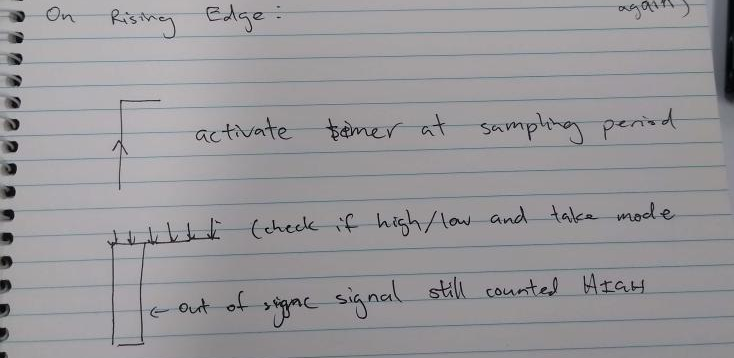 On Rising Edge:
again)
activate timer at sampling period
(check if high/low and take mode
out of signc signal still counted HIGH